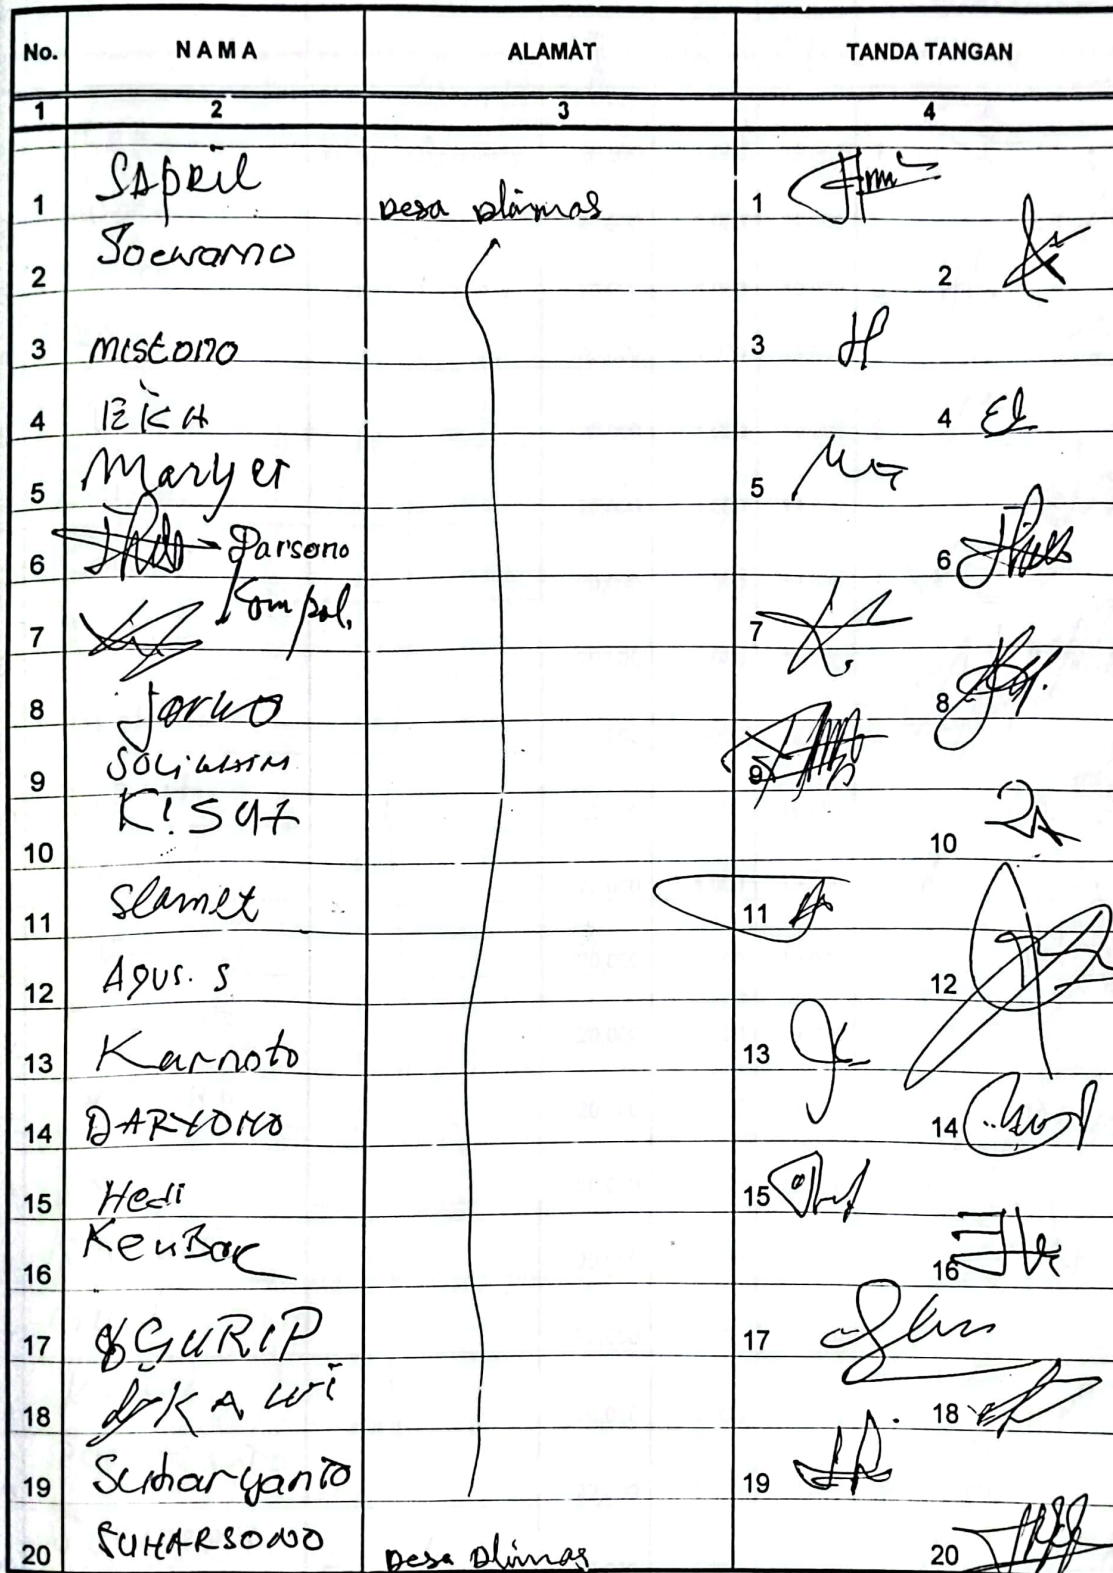 No. NAMA ALAMAT TANDA TANGAN
1 2 3 4
1 SApRil Desa Dlimas 1
2 Soewarno 2
3 mistono 3
4 EKA 4
5 Maryet 5
6 Parsono 6
7 Kompol. 7
8 Jarwo 8
9 9
10 10
11 Slamet 11
12 Agus. S 12
13 Karnoto 13
14 DARYONO 14
15 Hedi 15
16 16
17 GURIP 17
18 KAWi 18
19 Suharyanto 19
20 SUHARSONO Desa Dlimas 20